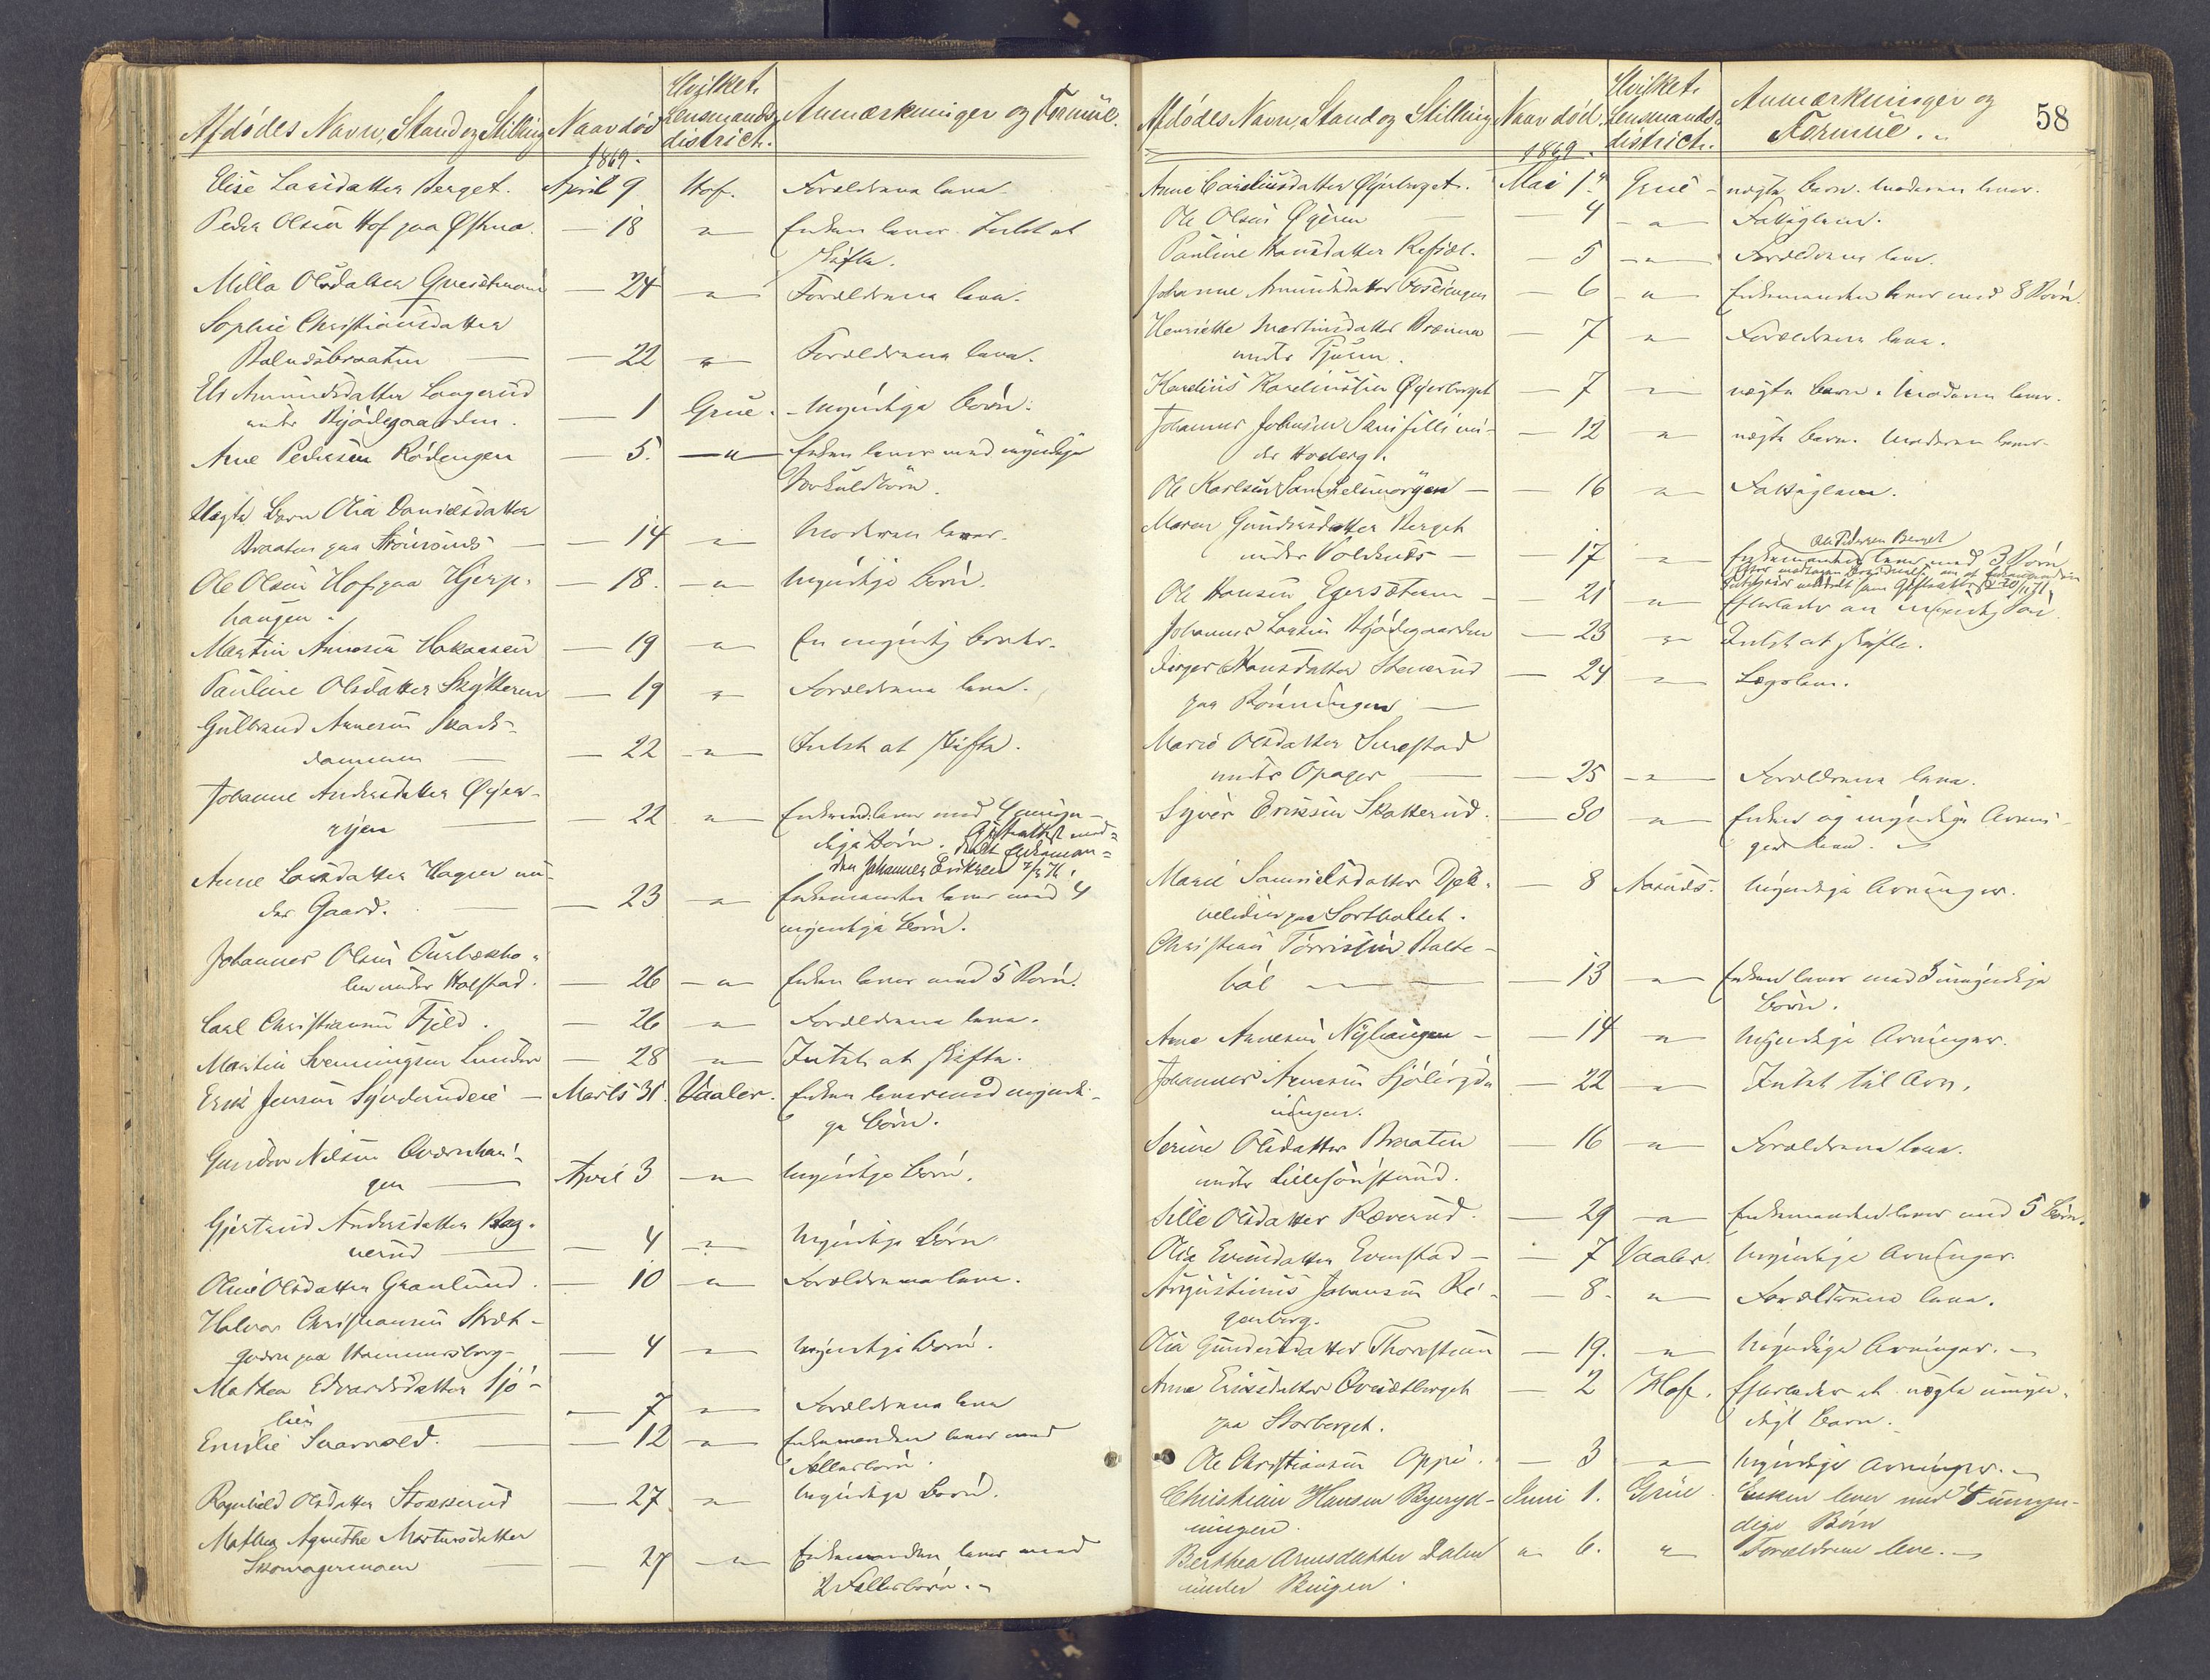 Afdödes Navn, Stand og Stilling Naar död Hvilket Lensmands district. Anmærkninger og Formue.
1869.
Elise Larsdatter Berget. April 9 Hof. Forældrene leve.
Peder Olsen Hof paa Østmo. — 18 " Enken lever. Intet at
skifte.
Milla Olsdatter — 24 " Forældrene leve.
Sophie Christiansdatter
Balndsbraaten — 22 " Forældrene leve.
Eli Amundsdatter Langerud
under Kjödegaarden. — 1 Grue. Myndige Börn.
Arne Pedersen Rödengen — 5. " Enken lever med myndige
Særkuldbörn.
Uægte Barn Olia Danielsdatter
Braaten paa — 14 " Moderen lever.
Ole Olsen Hof paa Hjerp-
haugen. — 18. " Myndige Börn.
Martin Arnesen Hokaasen — 19 " En myndig Broder.
Pauline Olsdatter Skytteren — 19 " Forældrene leve.
Gulbrand Arnesen Skads-
dammen — 22 " Intet at skifte.
Johanne Andersdatter Øyer-
øyen — 22 " Enkemd. lever med 4 umyn-
dige Börn. Giftsattest med-
delt Enkeman-
den Johannes Eriksen
Anne Larsdatter Hagen un-
der Gaard. — 23 " Enkemanden lever med 4
myndige Börn.
Johannes Olsen
len under Holstad. — 26 " Enken lever med 5 Börn.
Carl Christiansen Fjeld. — 26 " Forældrene leve.
Martin Svenningsen Lunder — 28 " Intet at skifte.
Erik Jensen — Marts 31. Vaaler. Enken lever med myndi-
ge Börn.
Gunder Nilsen Qværnhau-
gen — April 3 " Myndige Börn.
Gjertrud Andersdatter Bag-
nerud — 4 " Myndige Börn.
Oline Olsdatter Granlund. — 10 " Forældrene leve.
Halvor Christiansen
paa Hammersborg — 4 " Myndige Börn.
Mathea Edvardsdatter Sjö-
lien — 7 " Forældrene leve
Emilie Svarvold. — 12 " Enkemanden lever med
Fællesbörn.
Ragnhild Olsdatter Stokkerud — 27 " Myndige Börn.
Mathea Agnethe Martinsdatter
Skomagermoen — 27 " Enkemanden lever med
2 Fællesbörn.
Afdödes Navn, Stand og Stilling Naar död. Hvilket Lensmands district. Anmærkninger og Formue. 58
1869.
Anne Careliusdatter Øyerberget. Mai 1. Grue uægte Barn. Moderen lever.
Ole Olsen Øyeren — 4 " Fattiglem.
Pauline Hansdatter Refset. — 5 " Forældrene leve.
Johanne Amundsdatter Fossengen — 6 " Enkemanden lever med 8 Börn.
Henriette Martinsdatter Brænna
under Tjuren. — 7 " Forældrene leve.
Karelius Kareliussen Øyerberget — 7 " uægte Barn. Moderen lever.
Johannes Johnsen un-
der Hoberg. — 12 " uægte Barn. Moderen lever.
Ole Karlsen — 16 " Fattiglem.
Maren Gundersdatter Berget
under Voldnæs — 17 " Enkemanden Ole Pedersen Berget lever med 3 Börn
Ole Hansen Egersæteren — 21 " Efterlader en myndig Sön.
Johannes Larsen Kjödegaarden — 23 " Intet at skifte.
Inger Hansdatter Stenerud
paa Rönningen — 24 " Lægslem.
Marie Olsdatter Svestad
under Opager — 25 " Forældrene leve.
Syver Eriksen Skatterud. — 30 " Enken og myndige Arvin-
ger leve.
Marie Samuelsdatter Djek-
nelien paa Sortholtet. — 8 Aasnæs. Myndige Arvinger.
Christian Törrissen Balte-
böl — 13 " Enken lever med 3 umyndige
Börn.
Arne Arnesen Nyhaugen — 14 " Myndige Arvinger.
Johannes Arnesen Sjölirydn
ingen. — 22 " Intet til Arv.
Serine Olsdatter Braaten
under Lillesönsterud. — 16 " Forældrene leve.
Sille Olsdatter Ræverud. — 29 " Enkemanden lever med 5 Börn.
Olia Evensdatter Evenstad — 7 Vaaler. Myndige Arvinger.
Augustinus Johansen Re-
genberg. — 8. " Forældrene leve.
Olia Gundersdatter Thorestuen — 19. " Myndige Arvinger.
Anne Eriksdatter Qvisætberget
paa Storberget. — 2 Hof. Efterlader et uægte umyn-
digt Barn.
Ole Christiansen Oppi. — 3 " Myndige Arvinger.
Christian Hansen Byeryd-
ningen. Juni 1. Grue. Enken lever med 4 umyn-
dige Börn
Berthea Arnesdatter Dalen
under Bingen. " 6. " Forældrene leve.